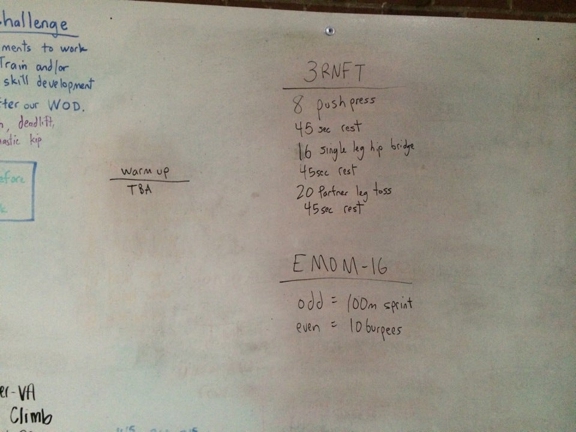 challenge
ments to work
Train and/or
skill development
ter our WOD.
, deadlift,
nastic kip
efore
warm up
TBA
3RNFT
8 push press
45 sec rest
16 single leg hip bridge
45sec rest
20 Partner leg toss
45sec rest
EMOM-16
odd = 100m sprint
even = 10 burpees
er-VA
Climb